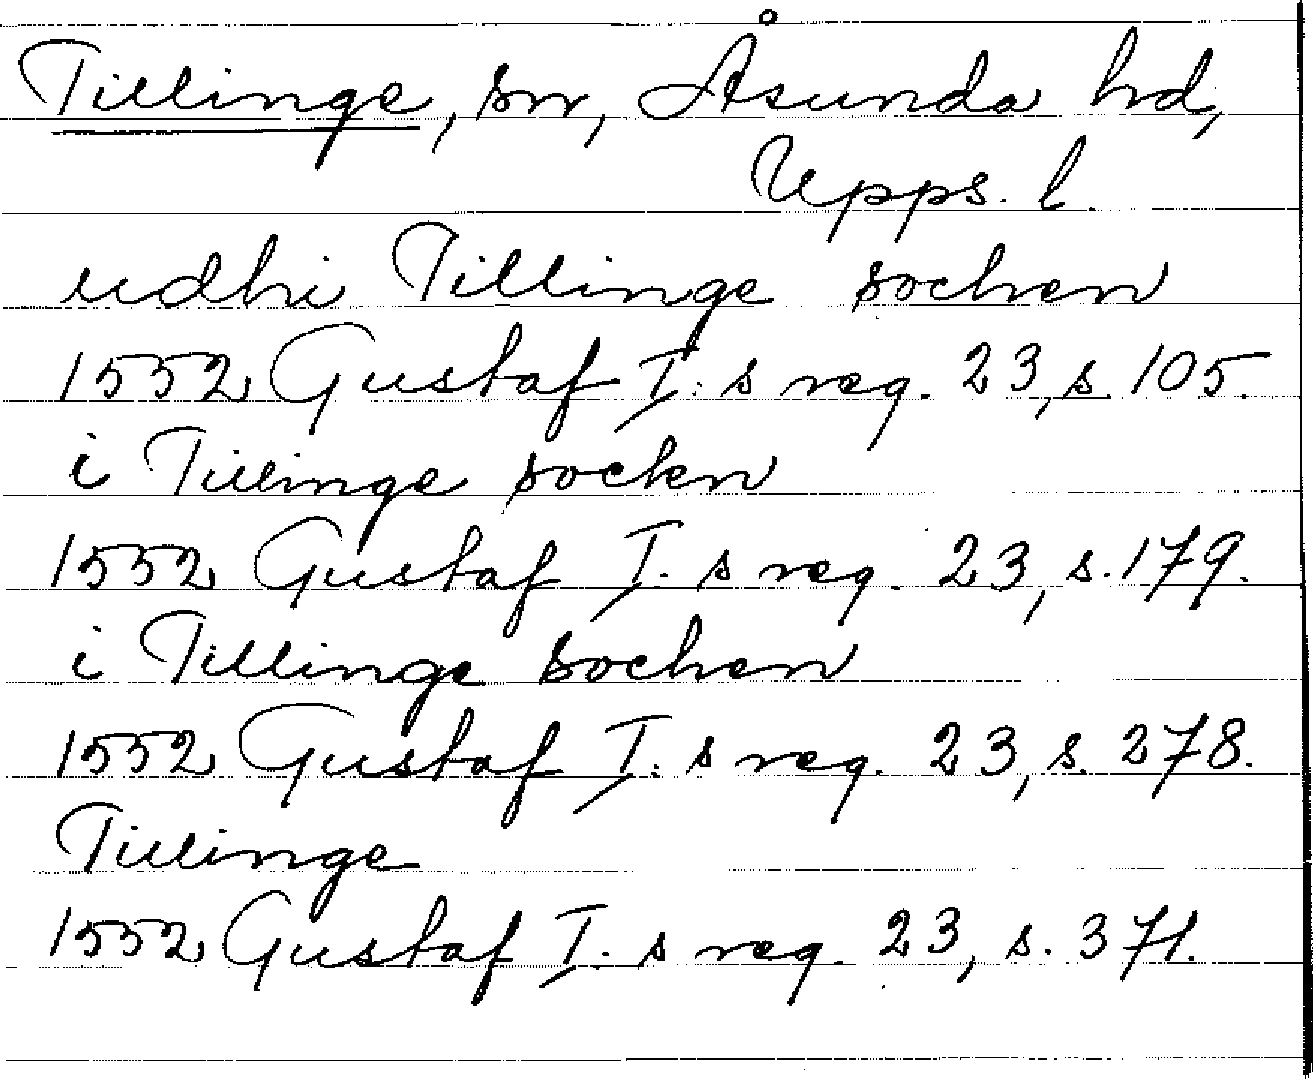 Tillinge, sn, Åsunda hd,
Upps. l.
udhi Tillinge sochen
1552 Gustaf I:s reg. 23, s. 105.
i Tillinge sockn
1552 Gustaf I. s reg. 23, s. 179.
i Tillinge sochen
1552 Gustaf I:s reg. 23, s. 278.
Tillinge
1552 Gustaf I. s reg. 23, s. 371.